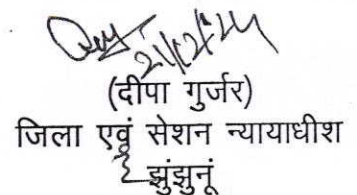 21/2/24
(दीपा गुर्जर)
जिला एवं सेशन न्यायाधीश
झुंझुनूं